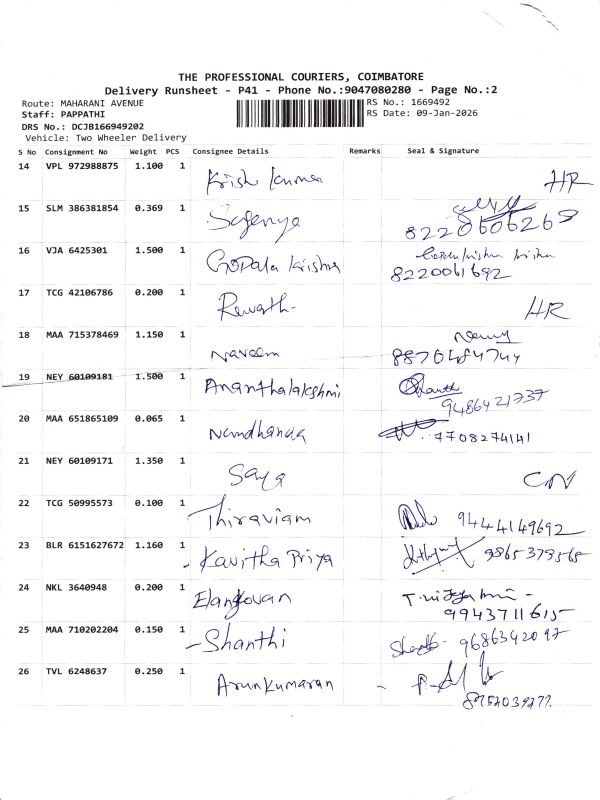 THE PROFESSIONAL COURIERS, COIMBATORE
Delivery Runsheet - P41 - Phone No.:9047080280 - Page No.:2
Route: MAHARANI AVENUE
RS No.: 1669492
Staff: PAPPATHI
RS Date: 09-Jan-2026
DRS No.: DCJB166949202
Vehicle: Two Wheeler Delivery
S No Consignment No Weight PCS Consignee Details Remarks Seal & Signature
14 VPL 972988875 1.100 1 Krish kumar HR
15 SLM 386381854 0.369 1 8220606268
16 VJA 6425301 1.500 1 Gopala krishna 8220061692
17 TCG 42106786 0.200 1 Revath- HR
18 MAA 715378469 1.150 1 Naveen
19 NEY 60109181 1.500 1 Ananthalakshmi 9486421737
20 MAA 651865109 0.065 1 Nandhanaa 7708274141
21 NEY 60109171 1.350 1
22 TCG 50995573 0.100 1 Thiraviam 9444149692
23 BLR 6151627672 1.160 1 - Kavitha Priya 9865379565
24 NKL 3640948 0.200 1 Elangovan 9943711615
25 MAA 710202204 0.150 1 - Shanthi 9686342097
26 TVL 6248637 0.250 1 Arunkumaran